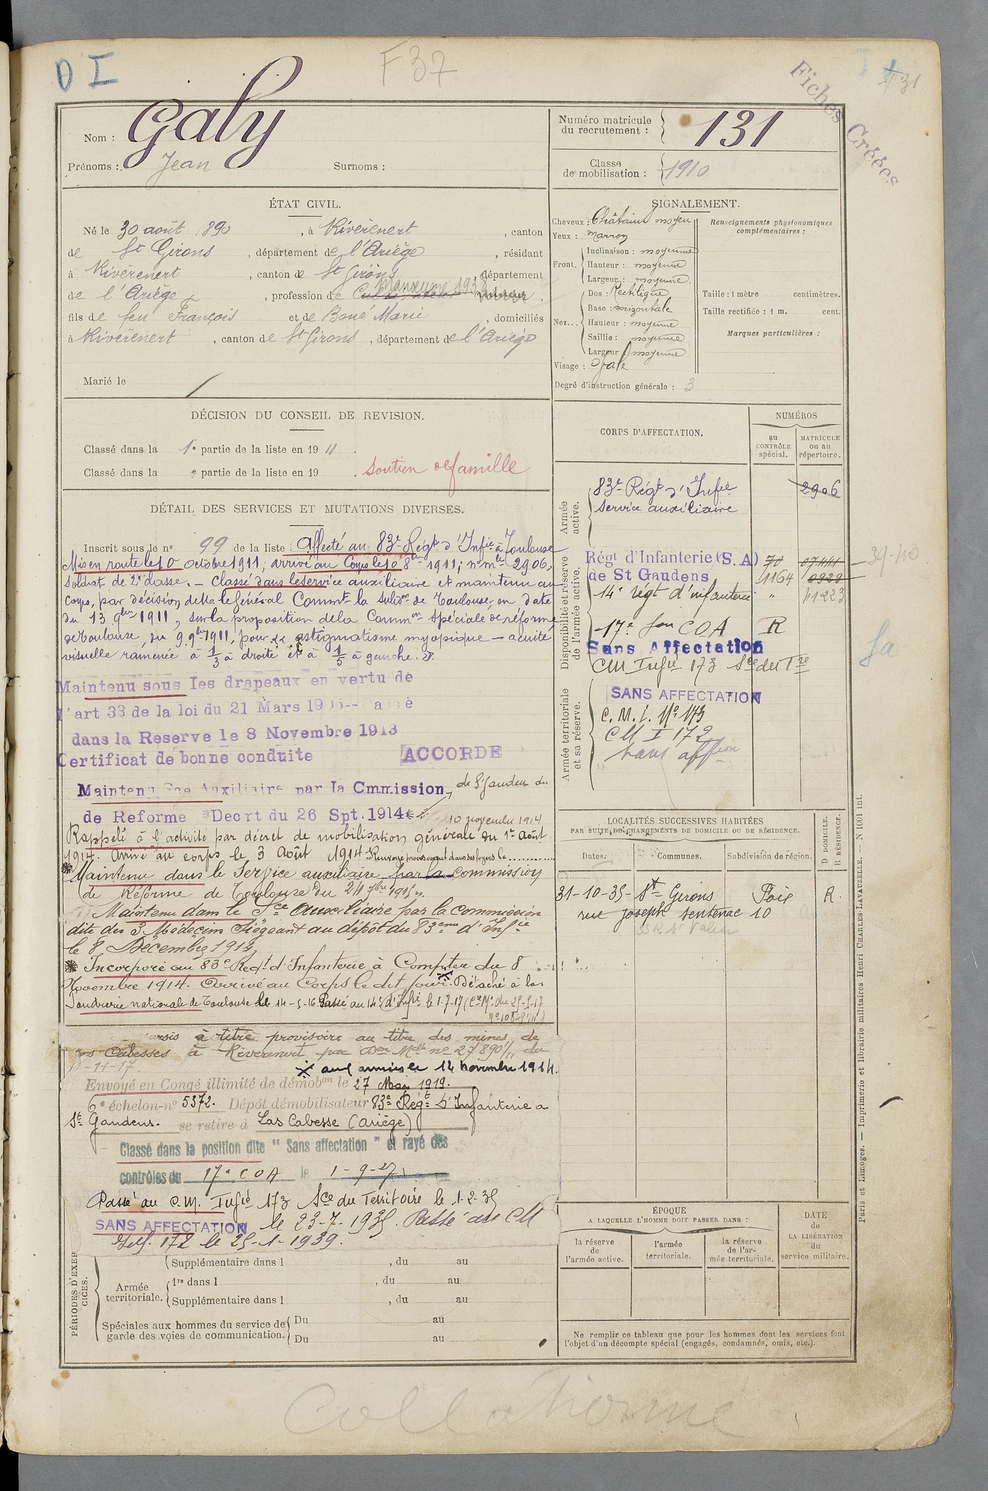 D I
F 37
131
Fiches Créées
Nom : Galy
Prénoms : Jean Surnoms :
Numéro matricule du recrutement : 131
Classe de mobilisation : 1910
ÉTAT CIVIL.
Né le 30 août 1890, à Rivèrenert, canton
de St Girons, département de l'Ariège, résidant
à Rivèrenert, canton de St Girons, département
de l'Ariège, profession de Cultivateur Manœuvre 193 mineur
fils de feu François et de Boue Marie, domiciliés
à Rivèrenert, canton de St Girons, département de l'Ariège
Marié le
SIGNALEMENT.
Cheveux : Châtains moyen
Yeux : marron
Front. Inclinaison : moyenne
Hauteur : moyenne
Largeur : moyenne
Nez... Dos : Rectiligne
Base : horizontale
Hauteur : moyenne
Saillie : moyenne
Largeur : moyenne
Visage : Ovale
Degré d'instruction générale : 3
Renseignements physionomiques complémentaires :
Taille : 1 mètre centimètres.
Taille rectifiée : 1 m. cent.
Marques particulières :
DÉCISION DU CONSEIL DE REVISION.
Classé dans la 1e partie de la liste en 1911
Classé dans la e partie de la liste en 19 . Soutien de famille
DÉTAIL DES SERVICES ET MUTATIONS DIVERSES.
Inscrit sous le n° 99 de la liste : Affecté au 83e Régt d'Infie à Toulouse
Mis en route le 10 octobre 1911, arrivé au Corps le 10 8bre 1911; n° mle 2906,
Soldat de 2e classe. – Classé dans le service auxiliaire et maintenu au
Corps, par décision de Mr le Général Commt la Subon de Toulouse, en date
du 13 9bre 1911, sur la proposition de la Common Spéciale de réforme
de Toulouse, du 9 9bre 1911, pour astigmatisme myopique – acuité
visuelle ramenée à 1/3 à droite et à 1/5 à gauche.
Maintenu sous les drapeaux en vertu de
l'art 33 de la loi du 21 Mars 1905--Passé
dans la Reserve le 8 Novembre 1913
Certificat de bonne conduite ACCORDE
Maintenu Sce Auxiliaire par la Cmmission de St Gaudens du
de Reforme Decrt du 26 Spt. 1914 10 novembre 1914
Rappelé à l'activité par décret de mobilisation générale du 1er Août
1914. Arrivé au corps le 3 Août 1914 Renvoyé provisoirement dans ses foyers le
Maintenu dans le Service auxiliaire par la commission
de Réforme de Toulouse du 24 7bre 1915.
Maintenu dans le Sce Auxiliaire par la commission
dite des 3 Médecins Siégeant au dépôt du 83eme d'Infie
le 8 Décembre 1914
Incorporé au 83e Régt d'Infanterie à Compter du 8
Novembre 1914. Arrivé au Corps le dit jour. Détaché à la
Poudrerie nationale de Toulouse le 14-5-16 Passé au 14e d'Infie le 1-7-17
sursis à titre provisoire au titre des mines de
Las Cabesses à Rivèrenert par Don Mlle n° 27890 du
11-11-17.
aux armées le 14 novembre 1914.
Envoyé en Congé illimité de démobon le 27 Mar 1919.
6e échelon-n° 5372. Dépôt démobilisateur 83e Régt d'Infanterie à
St Gaudens. se retire à Las Cabesse (Ariège)
Classé dans la position dite "Sans affectation" et rayé des
contrôles du 17e COA le 1-9-27
Passé au C.M. Infie 173 Sce du Territoire le 1.2.35
SANS AFFECTATION le 23-7-1935. Passé au CM
Inf. 172 le 25-1-1939.
CORPS D'AFFECTATION.
NUMÉROS
au CONTRÔLE spécial.
MATRICULE ou au répertoire.
Armée active.
83e Régt d'Infie 2906
Service auxiliaire
Disponibilité et réserve de l'armée active.
Régt d'Infanterie (S.A)
de St Gaudens
1164 0929
14e régt d'infanterie " 11223
17e Son COA R
Sans Affectation
CM Infie 173 Sce du Tre
Armée territoriale et sa réserve.
SANS AFFECTATION
C. M. I. N° 173
CM I 172
Sans affon
39-40
LOCALITÉS SUCCESSIVES HABITÉES
PAR SUITE DE CHANGEMENTS DE DOMICILE OU DE RÉSIDENCE.
D DOMICILE. R RÉSIDENCE.
Dates. Communes. Subdivision de région.
31-10-35 St Girons Foix R.
rue Joseph Sentenac 10
ÉPOQUE
A LAQUELLE L'HOMME DOIT PASSER DANS :
DATE de LA LIBÉRATION du service militaire.
la réserve de l'armée active.
l'armée territoriale.
la réserve de l'armée territoriale.
Ne remplir ce tableau que pour les hommes dont les services font
l'objet d'un décompte spécial (engagés, condamnés, omis, etc.).
PÉRIODES D'EXERCICES.
Armée territoriale.
Supplémentaire dans l , du au
1re dans l , du au
Supplémentaire dans l , du au
Spéciales aux hommes du service de garde des voies de communication.
Du au
Du au
Paris et Limoges. — Imprimerie et librairie militaires Henri CHARLES-LAVAUZELLE. — N 1001 int.
Collationné